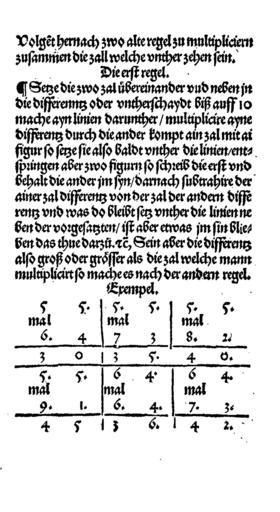 Volget hernach zwo alte regel zu multipliciern
zusammen die zall welche vnther zehen sein.
Die erst regel.
¶ Setze die zwo zal übereinander vnd neben in
die differenntz oder vntherschaydt biß auff 10
mache ayn linien darunther / multiplicire ayne
differentz durch die ander kompt ain zal mit ai
figur so setze sie also baldt vnther die linien / ent-
spüngen aber zwo figurn so schreib die erst vnd
behalt die ander jm syn / darnach subtrahire der
ainer zal differentz von der zal der andern diffe
rentz vnd was do bleibt setz vnther die linien ne
ben der vorgesatzten / ist aber etwas jm sin blie-
ben das thue darzů. ꝛc̃, Sein aber die differentz
also groß oder grösser als die zal welche mann
multiplicirt so mache es nach der andern regel.
Exempel.
5 5. 5. 5. 5. 5.
mal mal mal
6. 4 7 3 8. 2.
3 0 3 5. 4 0.
5. 5. 6 4. 6 4.
mal mal mal
9. 1. 6. 4. 7. 3.
4 5 3 6. 4 2.